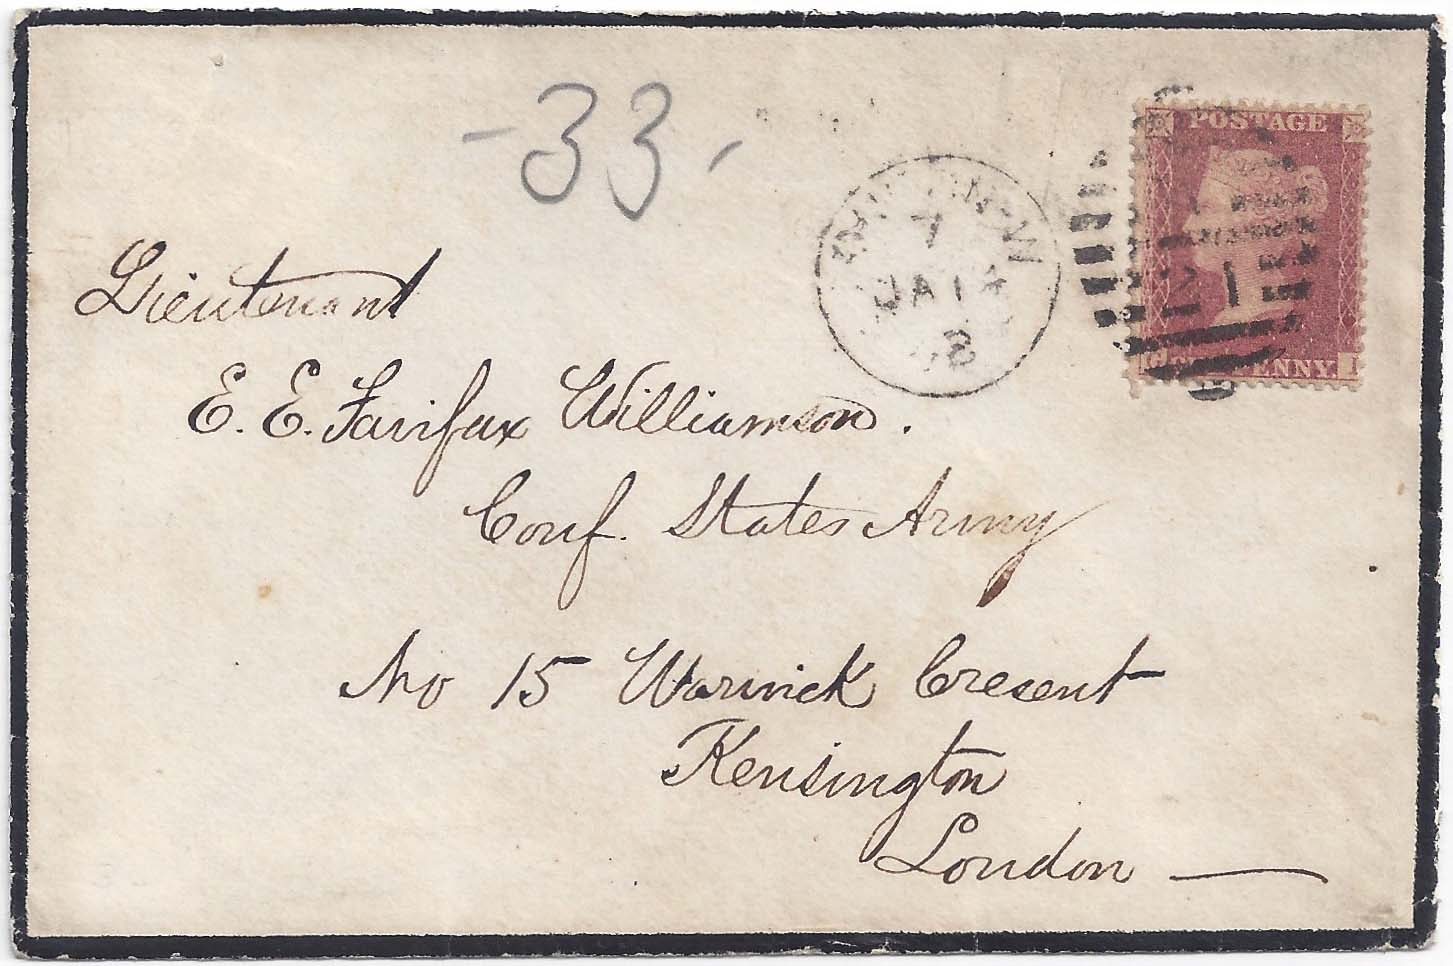 -33-
POSTAGE
7
JA 1
21
PENNY
Lieutenant
E. E. Fairfax Williamson.
Conf. States Army
No 15 Warwick Cresent
Kensington
London